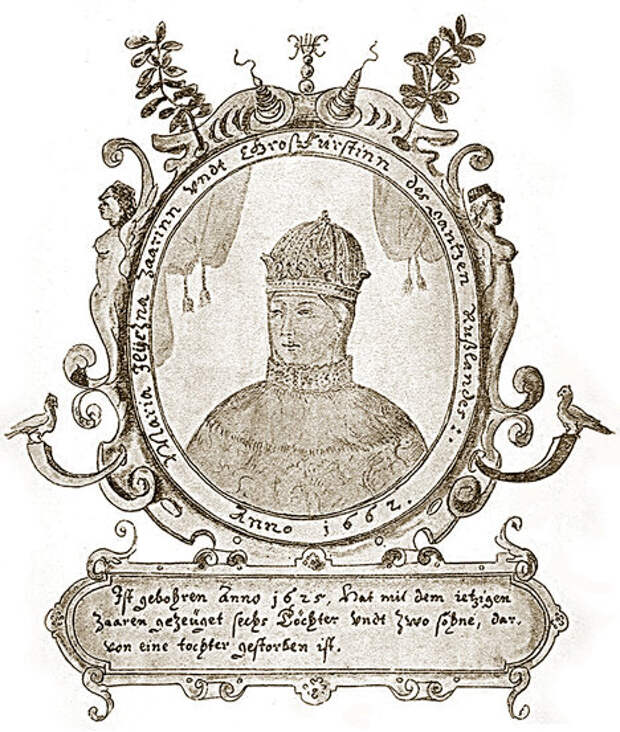 Maria Ilijczna Zaarinn vndt Grosfürstinn des Gantzen Rußlandes:.
Anno 1662.
Ist gebohren Anno 1625, Hat mit dem ietzigen
Zaaren gezeüget sechs Töchter vndt zwo söhne, dar-
von eine tochter gestorben ist.